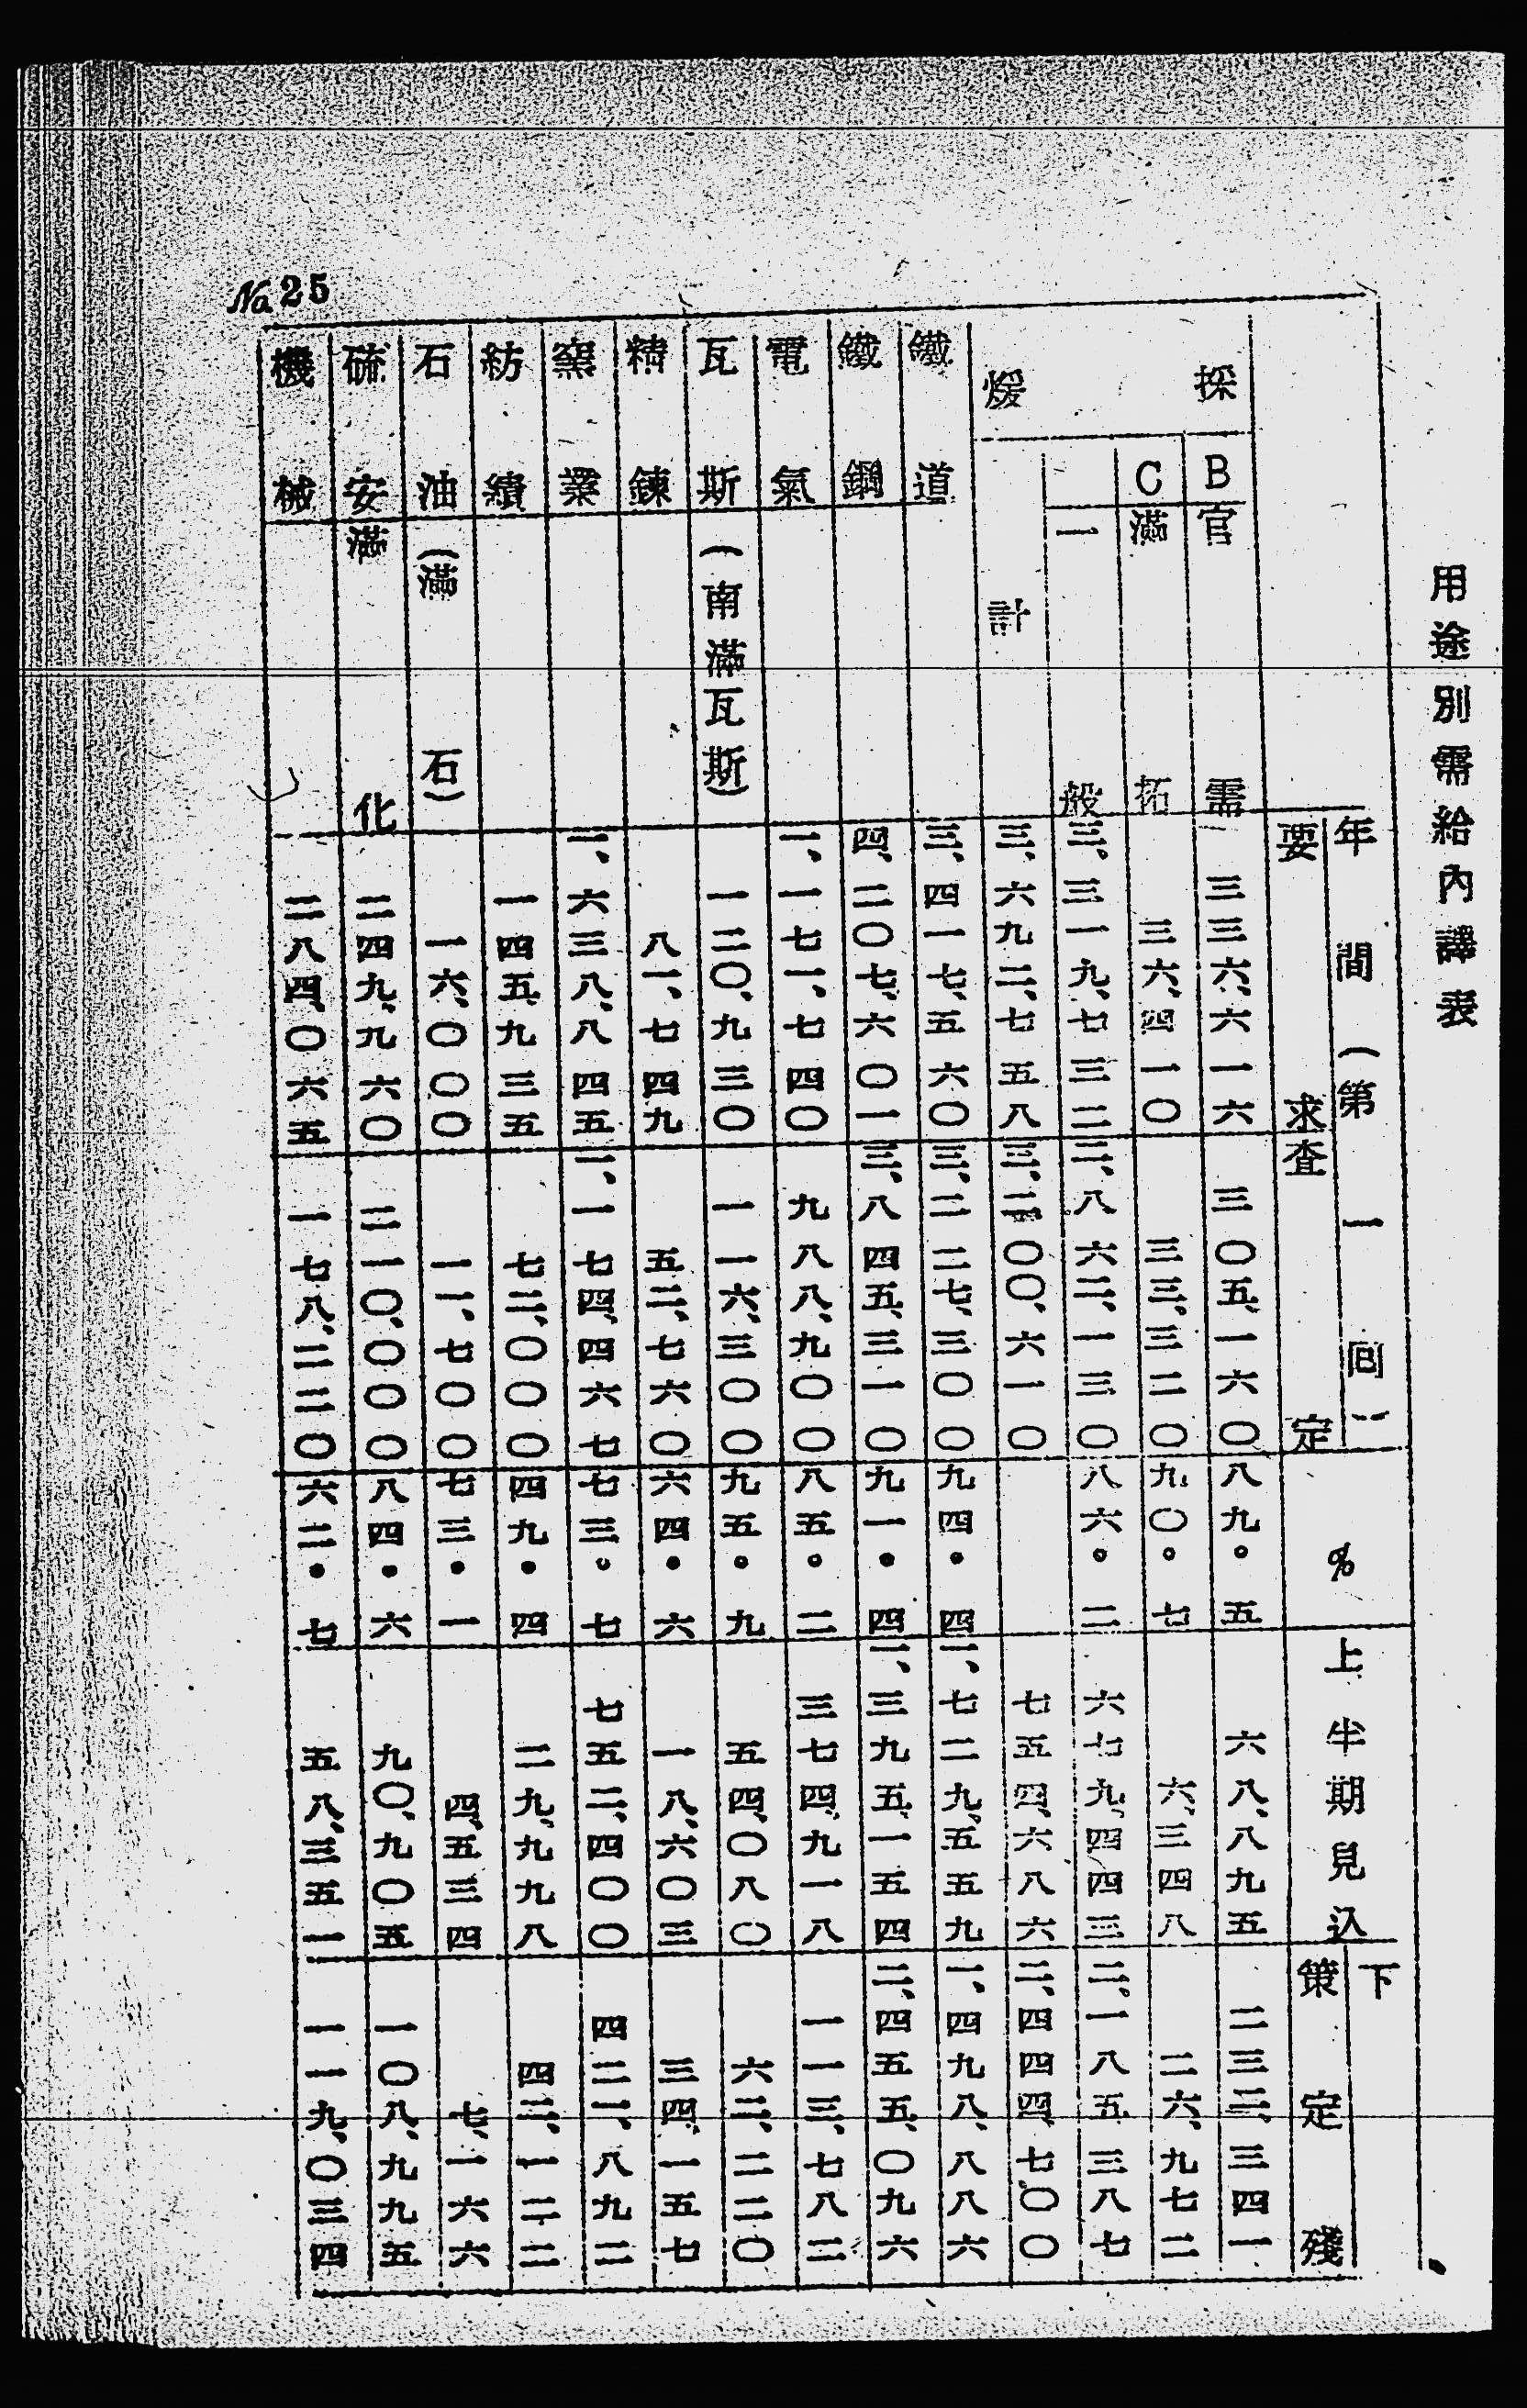 用途別需給內譯表
年間(第一回) 下
要求 査定 % 上半期見込 策定殘
採煖
B 官需 三三六、六一六 三〇五、一六〇 八九・五 六八、八九五 二三二、三四一
C 滿拓 三六、四一〇 三三、三二〇 九〇・七 六、三四八 二六、九七二
一般 三、三一九、七三二 二、八六二、一三〇 八六・二 六七九、四四三 二、一八五、三八七
計 三、六九二、七五八 三、二〇〇、六一〇 七五四、六八六 二、四四四、七〇〇
鐵道 三、四一七、五六〇 三、二二七、三〇〇 九四・四 一、七二九、五五九 一、四九八、八八六
鐵鋼 四、二〇七、六〇一 三、八四五、三一〇 九一・四 一、三九五、一五四 二、四五五、〇九六
電氣 一、一七一、七四〇 九八八、九〇〇 八五・二 三七四、九一八 一一三、七八二
瓦斯(南滿瓦斯) 一二〇、九三〇 一一六、三〇〇 九五・九 五四、〇八〇 六二、二二〇
精鍊 八一、七四九 五二、七六〇 六四・六 一八、六〇三 三四、一五七
窯業 一、六三八、八四五 一、一七四、四六七 七三・七 七五二、四〇〇 四二一、八九二
紡績 一四五、九三五 七二、〇〇〇 四九・四 二九、九九八 四二、一二二
石油(滿石) 一六、〇〇〇 一一、七〇〇 七三・一 四、五三四 七、一六六
硫安 滿化 二四九、九六〇 二一〇、〇〇〇 八四・六 九〇、九〇五 一〇八、九九五
機械 二八四、〇六五 一七八、二二〇 六二・七 五八、三五一 一一九、〇三四
No.25